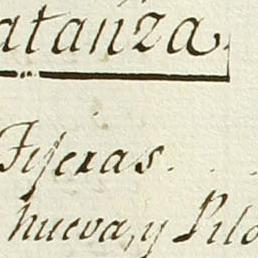 atanza
Tijeras. . .
nueva, y Pilo